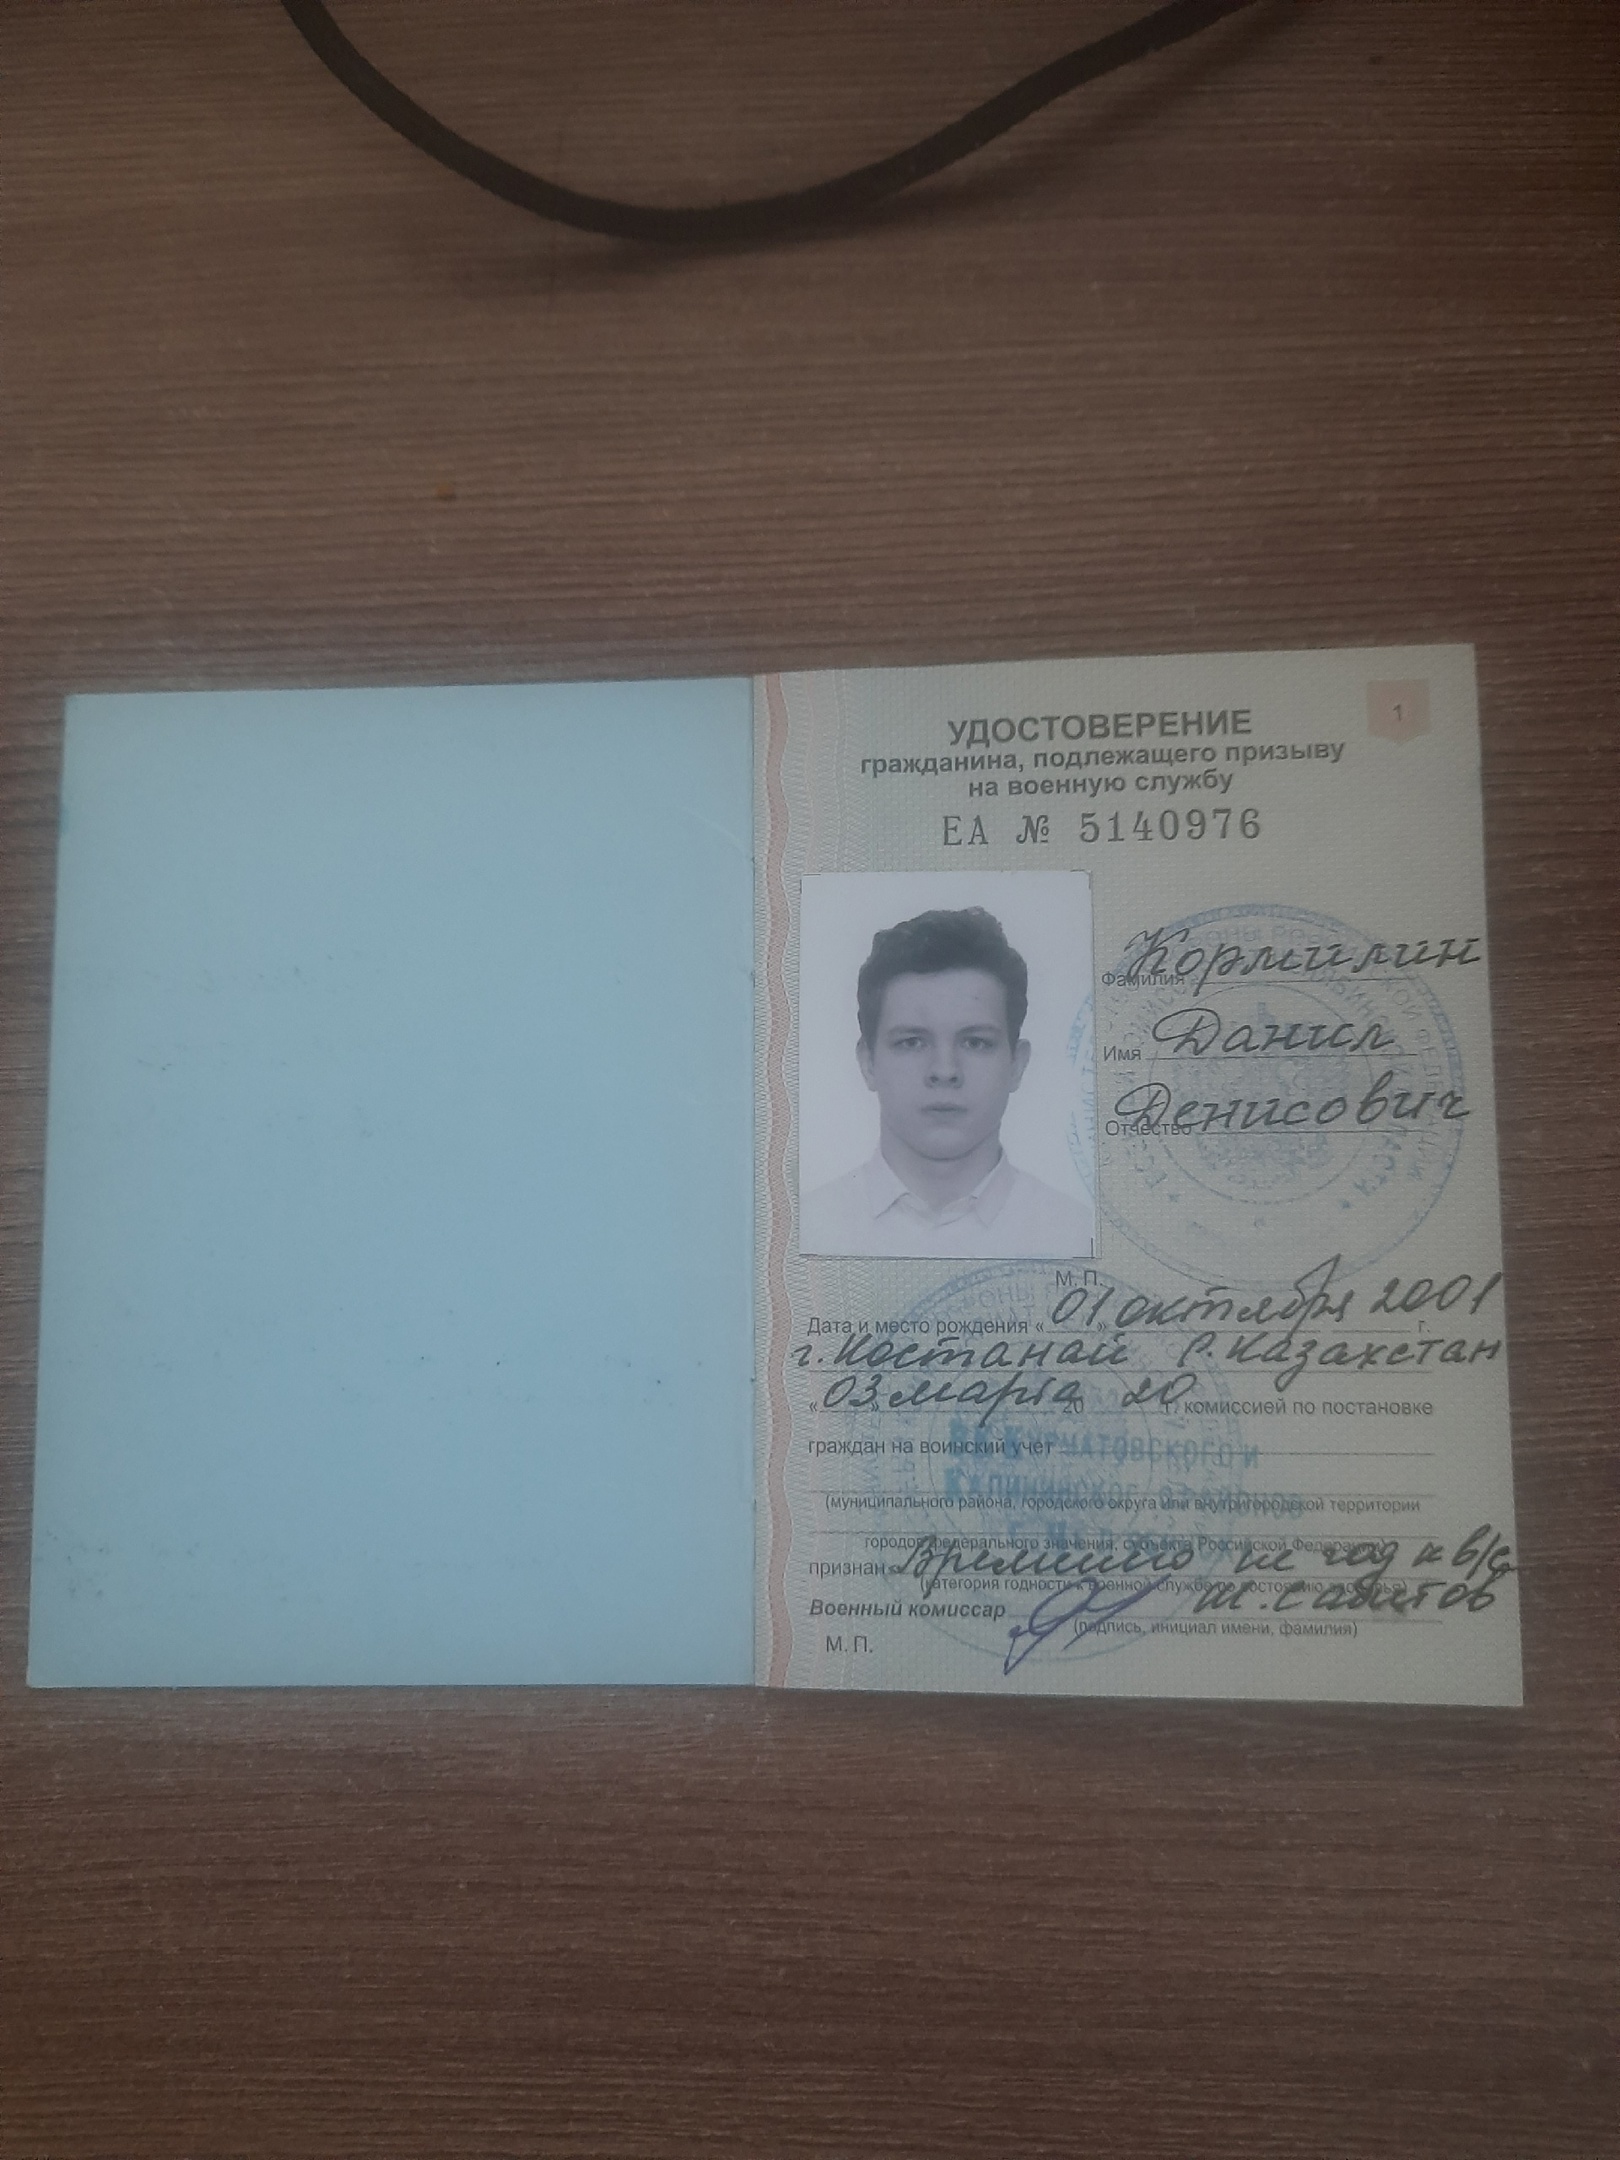 1
УДОСТОВЕРЕНИЕ
гражданина, подлежащего призыву
на военную службу
ЕА № 5140976
Фамилия Кормилин
Имя Данил
Отчество Денисович
М. П.
Дата и место рождения « 01 » октября 2001 г.
г. Костанай Р. Казахстан
« 03 » марта 20 20 г. комиссией по постановке
граждан на воинский учет
КУРЧАТОВСКОГО И
(муниципального района, городского округа или внутригородской территории
города федерального значения, субъекта Российской Федерации)
признан Временно не год к в/с
(категория годности к военной службе по состоянию здоровья)
Военный комиссар
(подпись, инициал имени, фамилия)
М. П.